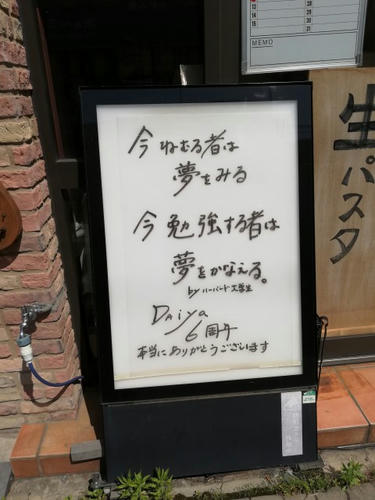 今ねむる者は
夢をみる
今勉強する者は
夢をかなえる。
by ハーバード大学生
Daiya
6周年
本当にありがとうございます
MEMO
生パスタ